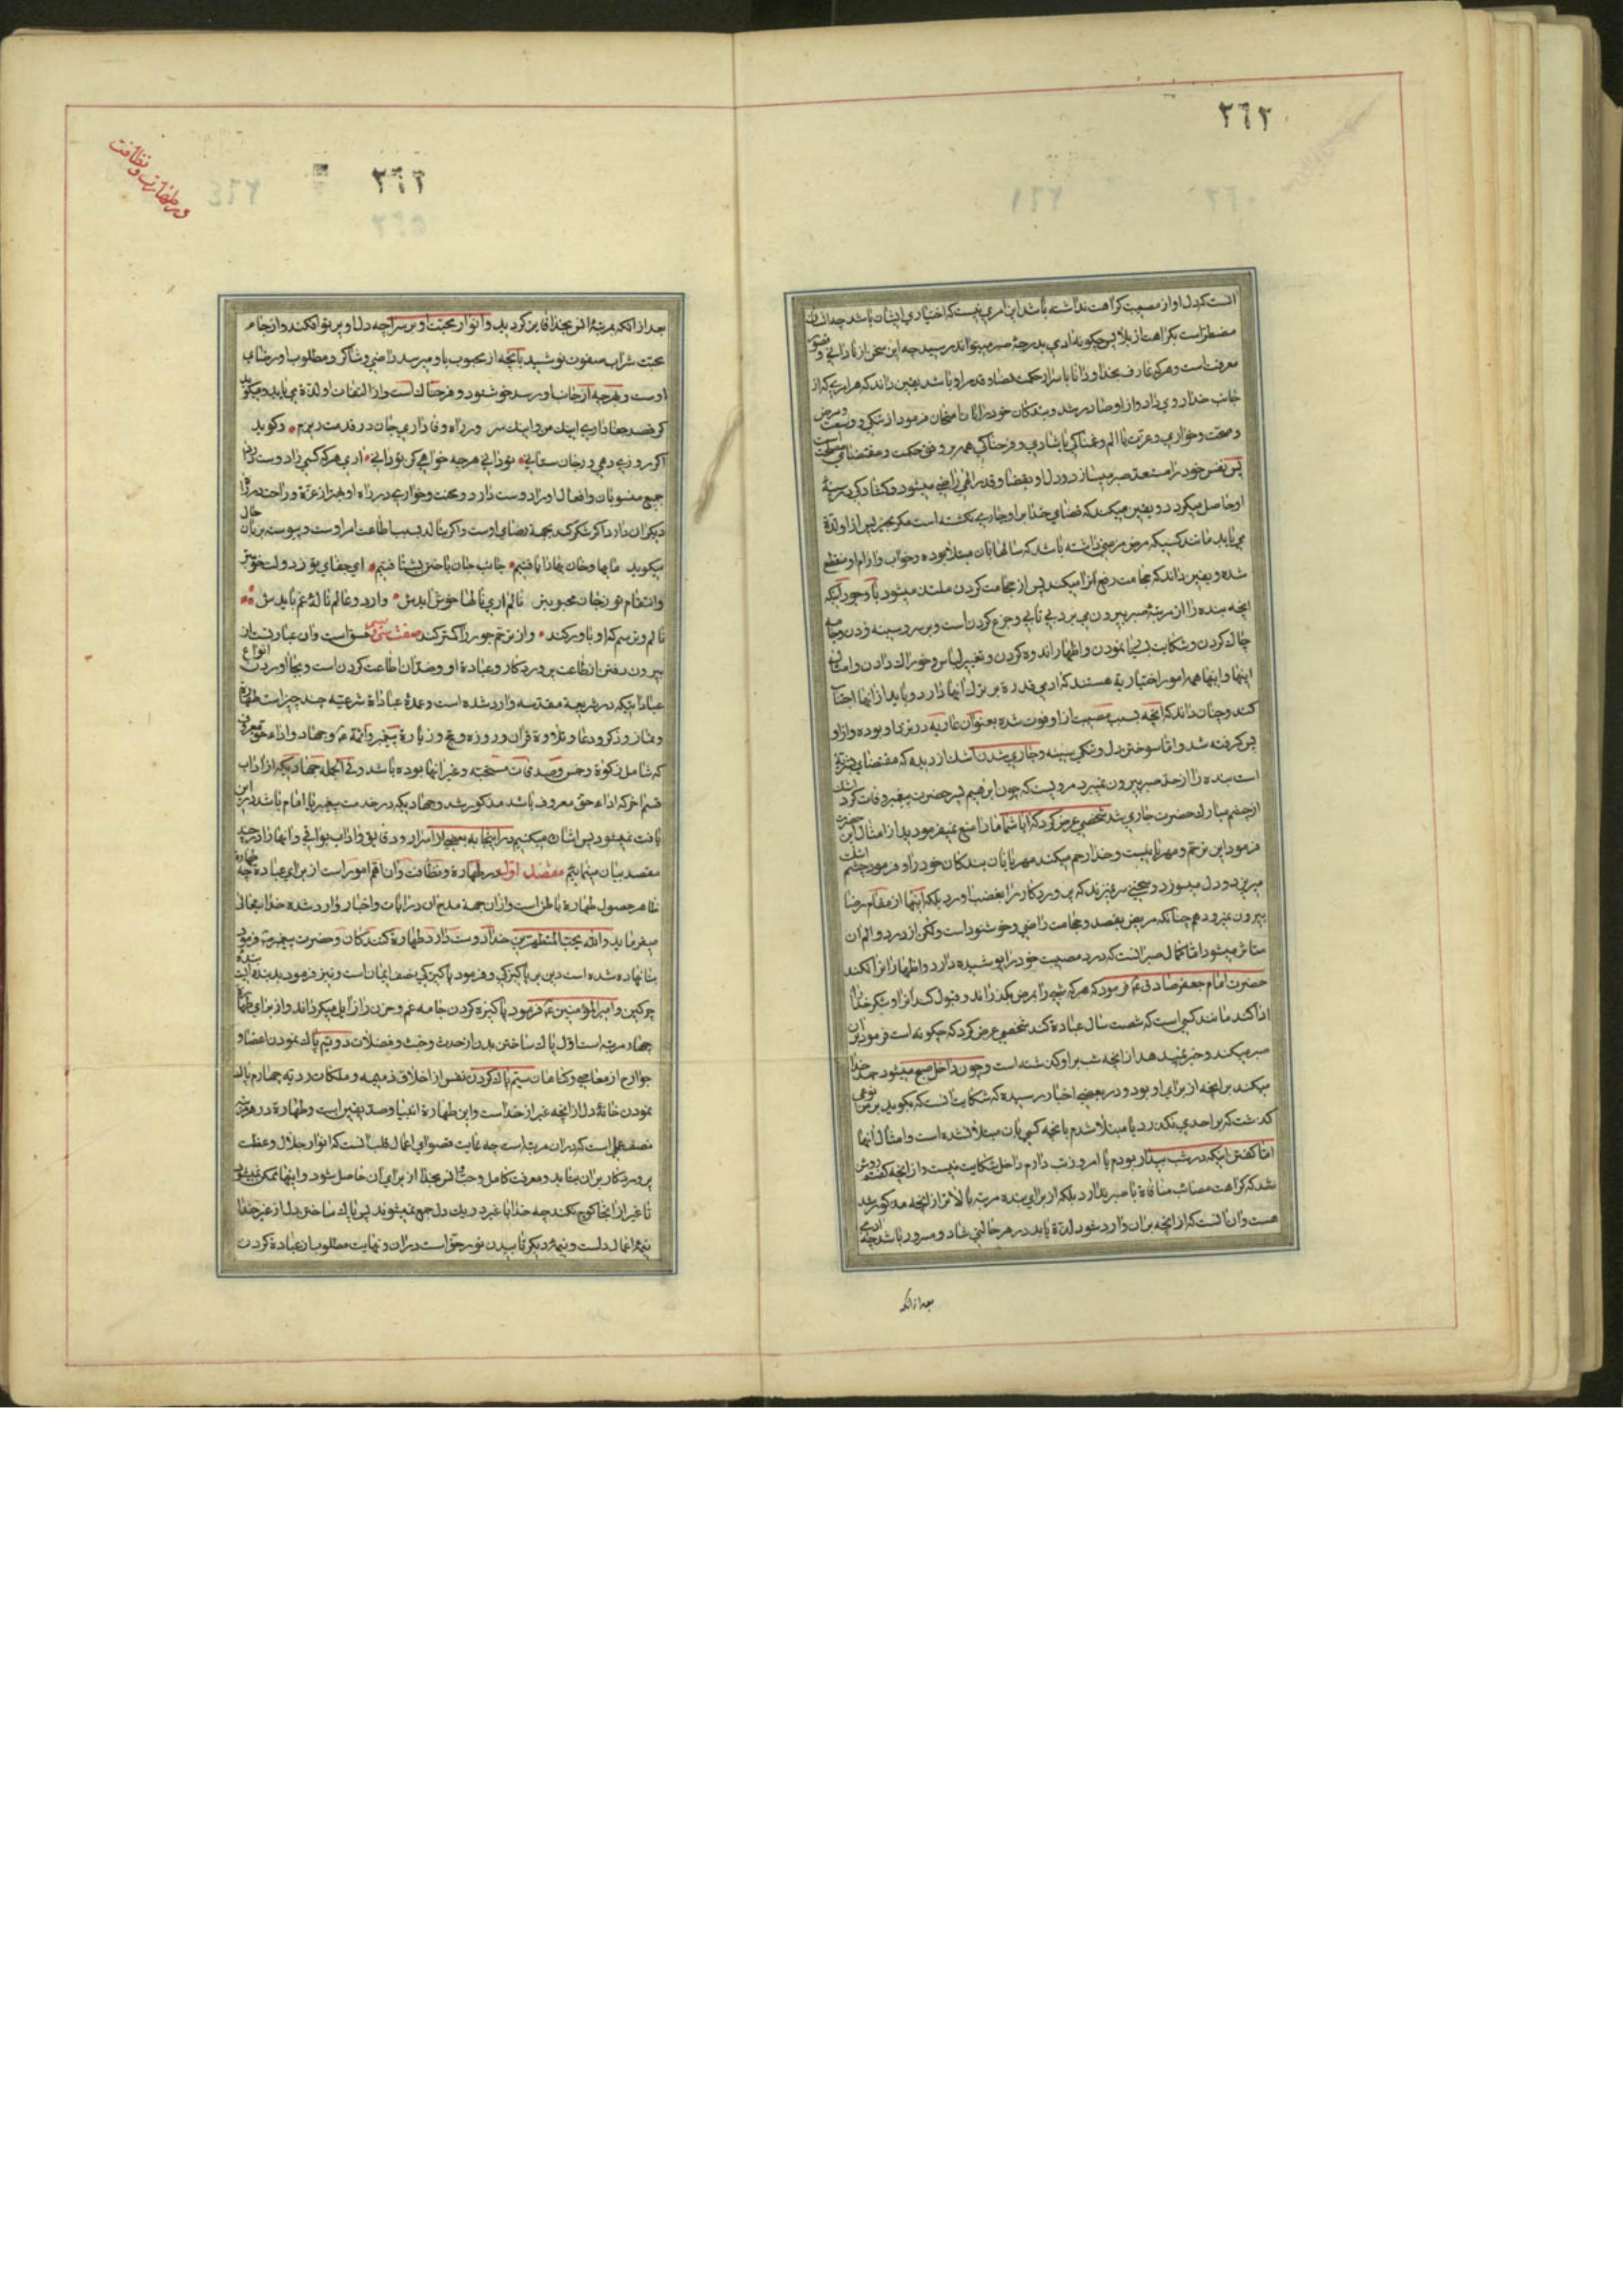 ٢٦٢
انست که دل او از مصیبت کراهت نداشته باشد این امری نیست که اختیاری ایشان باشد چه انسان
مضطر است بکراهت از بلا پس چگونه ادمی بدرجهٔ صبر میتواند رسید چه این سخن از نادانی و قصور
معرفت است و هر که عارف بخدا و دانا باسرار حکمت قضا و قدر او باشد یقین داند که هر امری که از
جانب خدا روی داد و از او صادر شد و بندکان خود را بان امتحان فرمود از تنکی و وسعت و مرض
و صحت و خواری و عزت یا الم و غمناکی یا شادی و فرحناکی همه بر وفق حکمت و مقتضای مصلحت است
پس نفس خود را مستعد صبر میسازد و دل او بقضا و قدر الهی راضی میشود و کشادکی در سینهٔ
او حاصل میکردد و یقین میکند که قضای خدا بر او جاری نکشته است مکر بخیر پس از او لذة
می یابد مانند کسیکه مرض مزمنی داشته باشد که سالها بان مبتلا بوده و خواب و ارام او منقطع
شده و یقین داند که حجامت رفع انرا میکند پس از حجامت کردن ملتذ میشود با وجود آنکه
انچه بنده را از مرتبهٔ صبر بیرون می برد بی تابی و جزع کردن است و بر سر و سینه زدن و جامه
چاك کردن و شکایت بسیار نمودن و اظهار اندوه کردن و تغییر لباس و خوراك دادن و امثال
اینها و اینها همه امور اختیاریة هستند که ادمی قدرة بر ترك انها دارد و باید از انها اجتناب
کند و چنان داند که انچه بسبب مصیبت از او فوت شده بعنوان عاریه در نزد او بوده و از او
پس کرفته شد و اما سوختن دل و تنکی سینه و جاری شدن اشك از دیده که مقتضای بشریة
است بنده را از حد صبر بیرون نمیبرد مرویست که چون ابرهیم پسر حضرت پیغمبر وفات کرد اشك
از چشم مبارك حضرت جاری شد شخصی عرض کرد که ایا شما ما را منع نمیفرمودید از امثال این حضرت
فرمود این ترحم و مهربانیست و خدا رحم میکند مهربانان بندکان خود را و فرمود چشم اشك
میریزد و دل میسوزد و سخنی سر نمیزند که پروردکار را بغضب اورد بلکه اینها از مقام رضا
بیرون نمیرود هم چنانکه مریض بفصد و حجامت راضی و خوشنود است ولکن از درد و الم ان
متاثر میشود اما کمال صبر انست که درد مصیبت خود را پوشیده دارد و اظهار انرا نکند
حضرت امام جعفر صادق ع فرمود که هر که شبی را بمرض بکذراند و قبول کند انرا و شکر خدا را
ادا کند مانند کسی است که شصت سال عبادة کند شخصی عرض کرد که چکونه است فرمود بر ان
صبر میکند و خبر نمیدهد از انچه شب بر او کذشته است و چون داخل صبح میشود حمد خدا
میکند بر انچه از برای او بود و در بعضی اخبار رسیده که شکایت انست که بکوید بر من نوعی
کذشت که بر احدی نکذرد یا مبتلا شدم بانچه کسی بان مبتلا نشده است و امثال انها
اما کفتن اینکه در شب بیدار بودم یا امروز تب دارم داخل شکایت نیست و از انچه کفتیم روشن
شد که کراهت مصائب منافاة با صبر ندارد بلکه از برای بنده مرتبهٔ بالاتر از انچه مذکور شد
هست و ان انست که از انچه بر ان وارد شود لذة یابد و در هر حالتی شاد و مسرور باشد چه ادمی
بعد از انکه
در طهارت و نظافت
بعد از انکه بمرتبهٔ انس بخدا فایز کردید و انوار محبت او بر سراچه دل او پرتو افکند و از جام
محبت شراب صفوت نوشید بانچه از محبوب باو میرسد راضی و شاکر و مطلوب او رضای
اوست و هر چه از جانب او رسد خوشنود و فرحناك است و از التفات او لذة می یابد و میکوید
کر قصد جفا داری اینك من و اینك سر ور راه وفا داری جان در قدمت ریزم و کوید
اکر روزی دهی ور جان ستانی تو دانی هر چه خواهی کن تو دانی اری هر که کسی را دوست دارد
جمیع منسوبان و افعال او را دوست دارد و محنت و خواری در راه او بهتر از عزة و راحت در نزد
دیکران داند اکر شکر کند بجهة رضای اوست و اکر بنالد بسبب اطاعت امر اوست و پیوسته بزبان حال
میکوید ما بها و جان بها را یافتیم جانب جان باختن بشتافتیم ای جفای تو ز دولت خوبتر
و انتقام تو ز جان محبوبتر نالم اری نالها خوش ایدش وز دو عالم ناله و غم بایدش
نالم و ترسم که او باور کند وز ترحم جور را کمتر کند صفت سی ام فسق است و ان عبارتست از
بیرون رفتن از طاعت پروردکار و عبادة او و ضد ان اطاعت کردن است و بجا اوردن انواع
عباداتیکه در شریعة مقدسه وارد شده است و عمدهٔ عبادات شرعیه چند چیز است طهارة
و نماز و ذکر و دعا و تلاوة قران و روزه و حج و زیارة پیغمبر و ائمه ع و جهاد و اداء حق معروف
که شامل زکوة و خمس و صدقات مستحبة و غیر انها بوده باشد و فی الجمله جهادیکه از اداب
ضمنا اخر که اداء حق معروف باشد مذکور شد و جهادیکه در خدمت پیغمبر یا امام باشد در این
یافت نمیشود پس اشاره میکنیم در اینجا به بعضی از اسرار و دقایق و اداب بواقی و انها را در چند
مقصد بیان مینمائیم مقصد اول در طهارة و نظافت و ان اهم امور است از برای عبادة چه
ظاهر حصول طهارة باطن است و از ان جهة مدح ان در ایات و اخبار وارد شده خداوند تعالی
میفرماید والله یحب المتطهرین خدا دوست دارد طهارة کنندکان و حضرت پیغمبر ص فرمود
بنا نهاده شده است دین بر پاکیزکی و فرمود پاکیزکی نصف ایمان است و نیز فرمود بد بنده ایست بنده
چرکین و امیر المؤمنین ع فرمود پاکیزه کردن جامه غم و حزن را زایل میکرداند و از برای طهارة
چهار مرتبه است اول پاك ساختن بدن از حدث و خبث و فضلات دویم پاك نمودن اعضا و
جوارح از معاصی و کناهان سیم پاك کردن نفس از اخلاق ذمیمه و ملکات ردیه چهارم پاك
نمودن خانهٔ دل از انچه غیر از خدا است و این طهارة انبیا و صدیقین است و طهارة در هر مرتبه
نصف عملی است که در ان مرتبه است چه غایت قصوای اعمال قلب انست که انوار جلال و عظمت
پروردکار بر ان بتابد و معرفت کامل و حب و انس بخدا از برای ان حاصل شود و اینها ممکن نمیشود
تا غیر از انجا کوچ نکند چه خدا با غیر در یك دل جمع نمیشوند پس پاك ساختن دل از غیر خدا
نیمهٔ اعمال دلست و نیمهٔ دیکر تابیدن نور حق است در ان و نهایت مطلوب از عبادة کردن